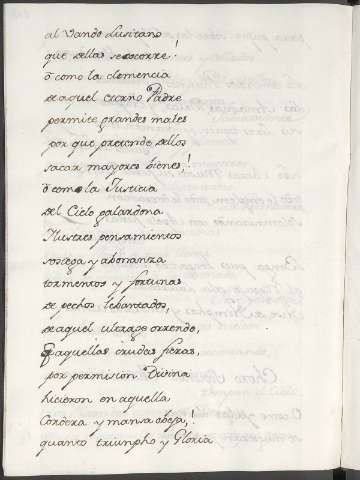 al Vando Lusitano
que dellas se socorre!
ô como la clemencia
de aquel eterno Padre
permite grandes males
por que pretende dellos
sacar mayores bienes!
ô como la Justicia
del Cielo galardona
Ilustres pensamientos
sossega y abonanza
tormentos y fortunas
de pechos lebantados,
de aquel ultrage orrendo,
q aquellas crudas fieras,
por permision Divina
hicieron en aquella
Cordera y mansa obeja,!
quanto triunpho y Gloria